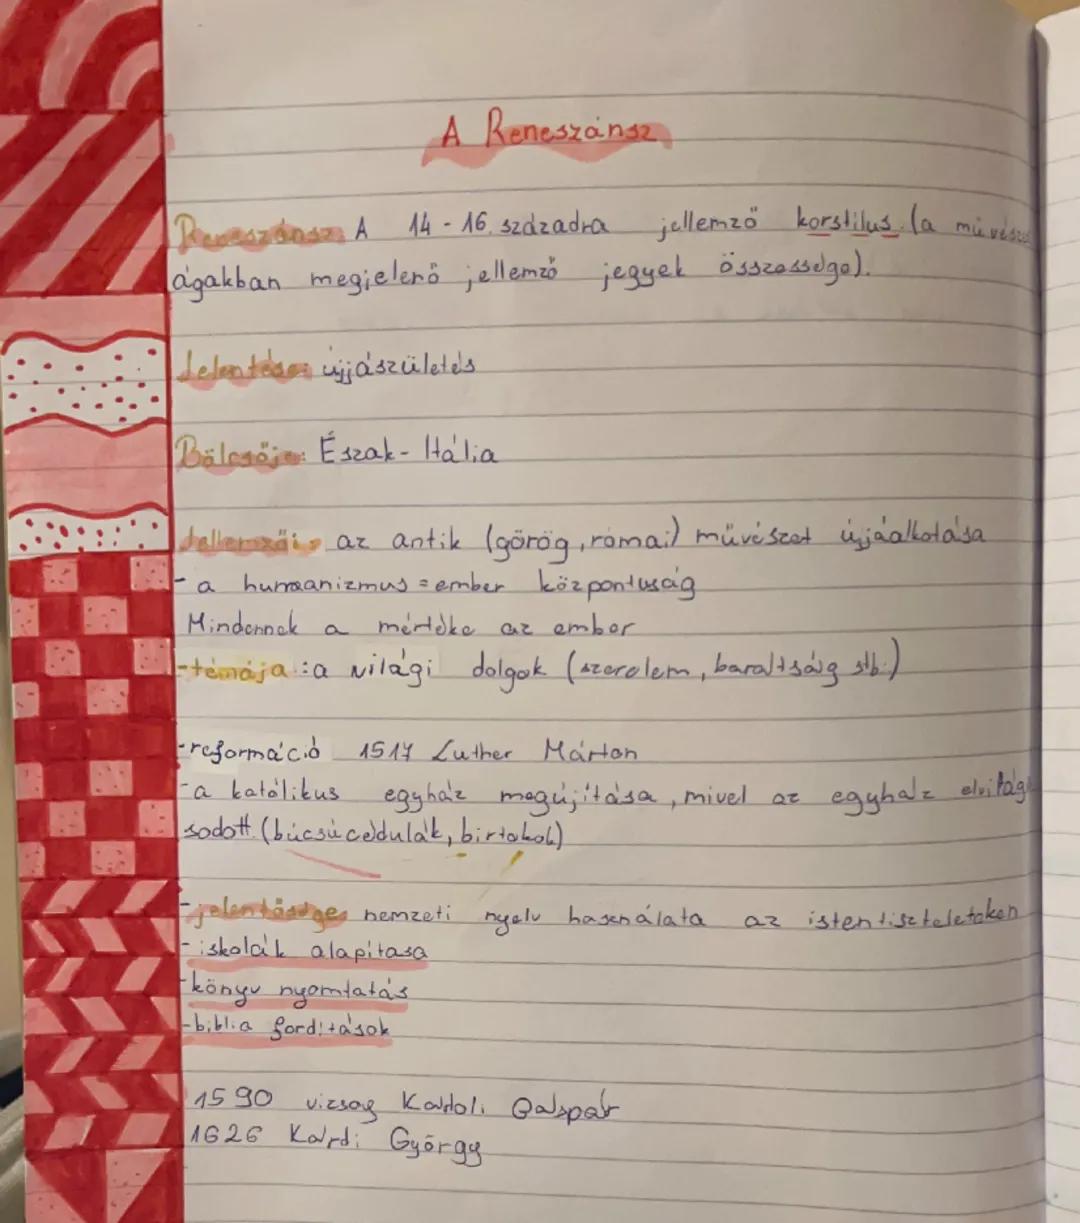 A Reneszánsz
Reneszánsz: A 14 - 16. századra jellemző korstílus (a művész
ágakban megjelenő jellemző jegyek összessége).
Jelentése: újjászületés
Bölcsője: Észak - Itália
Jellemzői: az antik (görög, római) művészet újjáalkotása
- a humaanizmus = ember központuság
Mindennek a mértéke az ember
- témája : a világi dolgok (szerelem, baraltság stb.)
- reformáció 1517 Luther Márton
- a katólikus egyház megújítása, mivel az egyház elvilági
sodott. (búcsúcédulák, birtokok)
- jelentősége nemzeti nyelv használata az istentiszteleteken
- iskolák alapítasa
- könyv nyomtatás
- biblia fordítások
1590 vizsoly Károli Gáspár
1626 Káldi György